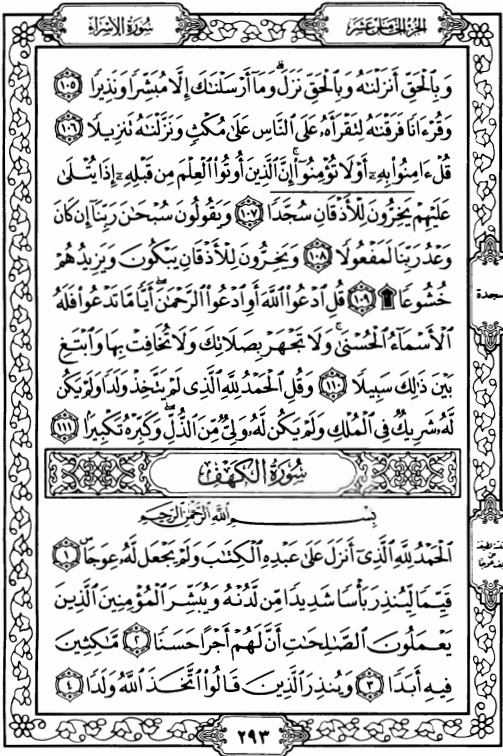 سُورَةُ الإِسۡرَاءِ
الجُزءُ الخَامِسَ عَشَرَ
وَبِٱلۡحَقِّ أَنزَلۡنَٰهُ وَبِٱلۡحَقِّ نَزَلَۗ وَمَآ أَرۡسَلۡنَٰكَ إِلَّا مُبَشِّرٗا وَنَذِيرٗا ١٠٥
وَقُرۡءَانٗا فَرَقۡنَٰهُ لِتَقۡرَأَهُۥ عَلَى ٱلنَّاسِ عَلَىٰ مُكۡثٖ وَنَزَّلۡنَٰهُ تَنزِيلٗا ١٠٦
قُلۡ ءَامِنُواْ بِهِۦٓ أَوۡ لَا تُؤۡمِنُوٓاْۚ إِنَّ ٱلَّذِينَ أُوتُواْ ٱلۡعِلۡمَ مِن قَبۡلِهِۦٓ إِذَا يُتۡلَىٰ
عَلَيۡهِمۡ يَخِرُّونَۤ لِلۡأَذۡقَانِۤ سُجَّدٗاۤ ١٠٧ وَيَقُولُونَ سُبۡحَٰنَ رَبِّنَآ إِن كَانَ
وَعۡدُ رَبِّنَا لَمَفۡعُولٗا ١٠٨ وَيَخِرُّونَ لِلۡأَذۡقَانِ يَبۡكُونَ وَيَزِيدُهُمۡ
خُشُوعٗا ۩ ١٠٩ قُلِ ٱدۡعُواْ ٱللَّهَ أَوِ ٱدۡعُواْ ٱلرَّحۡمَٰنَۖ أَيّٗا مَّا تَدۡعُواْ فَلَهُ
ٱلۡأَسۡمَآءُ ٱلۡحُسۡنَىٰۚ وَلَا تَجۡهَرۡ بِصَلَاتِكَ وَلَا تُخَافِتۡ بِهَا وَٱبۡتَغِ
بَيۡنَ ذَٰلِكَ سَبِيلٗا ١١٠ وَقُلِ ٱلۡحَمۡدُ لِلَّهِ ٱلَّذِي لَمۡ يَتَّخِذۡ وَلَدٗا وَلَمۡ يَكُن
لَّهُۥ شَرِيكٞ فِي ٱلۡمُلۡكِ وَلَمۡ يَكُن لَّهُۥ وَلِيّٞ مِّنَ ٱلذُّلِّۖ وَكَبِّرۡهُ تَكۡبِيرَۢا ١١١
سُورَةُ الكَهۡفِ
بِسۡمِ ٱللَّهِ ٱلرَّحۡمَٰنِ ٱلرَّحِيمِ
ٱلۡحَمۡدُ لِلَّهِ ٱلَّذِيٓ أَنزَلَ عَلَىٰ عَبۡدِهِ ٱلۡكِتَٰبَ وَلَمۡ يَجۡعَل لَّهُۥ عِوَجَاۜ ١
قَيِّمٗا لِّيُنذِرَ بَأۡسٗا شَدِيدٗا مِّن لَّدُنۡهُ وَيُبَشِّرَ ٱلۡمُؤۡمِنِينَ ٱلَّذِينَ
يَعۡمَلُونَ ٱلصَّٰلِحَٰتِ أَنَّ لَهُمۡ أَجۡرًا حَسَنٗا ٢ مَّٰكِثِينَ
فِيهِ أَبَدٗا ٣ وَيُنذِرَ ٱلَّذِينَ قَالُواْ ٱتَّخَذَ ٱللَّهُ وَلَدٗا ٤
سجدة
٢٩٣